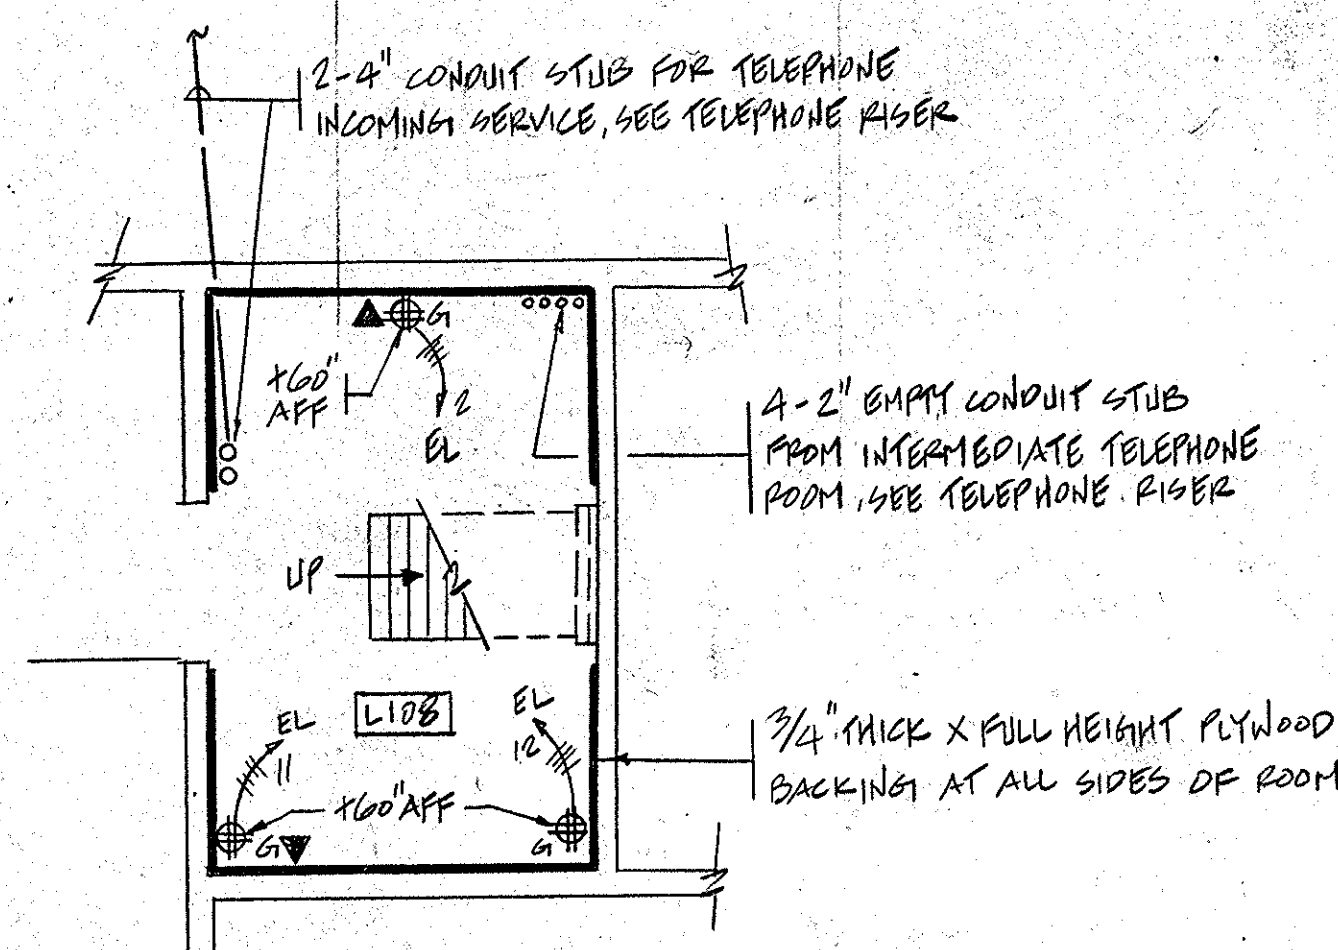 2-4" CONDUIT STUB FOR TELEPHONE
INCOMING SERVICE, SEE TELEPHONE RISER
G
+60"
AFF
2
EL
4-2" EMPTY CONDUIT STUB
FROM INTERMEDIATE TELEPHONE
ROOM, SEE TELEPHONE RISER
UP
L108
EL
11
EL
12
+60" AFF
G
G
3/4" THICK X FULL HEIGHT PLYWOOD
BACKING AT ALL SIDES OF ROOM